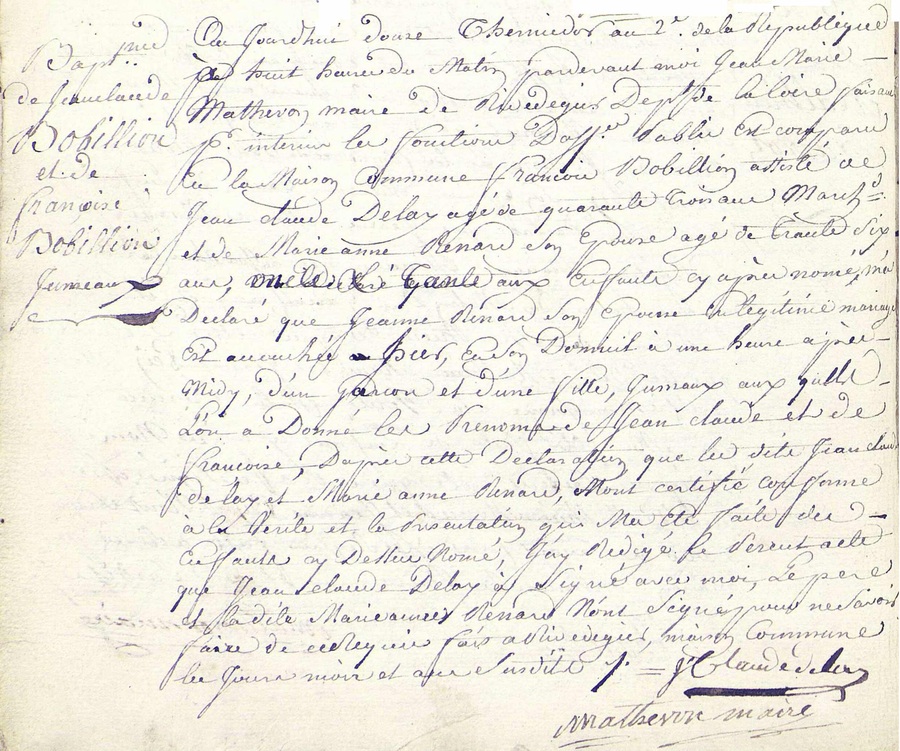 Bap.me
de Jeanclaude
Bobillion
et. de
françoise
Bobillion
Jumeaux
Au Jourdhui douze Thermidor an 2e. de la Republique
huit heures du Matin pardevant moi Jean Marie
Matheron maire de Rivedegier Dept. de la loire faisant
pr. interim les fonctions D'off.r Public Est comparu
En la Maison Commune francois Bobillion assisté de
Jean claude Delay agé de quarante trois ans March.d
et de Marie anne Renard Son Epouse age de trante Six
ans, aux Enfants cy après nomé, m'a
Declaré que Jeanne Renard Son Epouse En légitime mariage
Est accouchée hier, En Son Domicil à une heure après
Midy, d'un garcon et d'une fille, Jumaux aux quels
L'on a Donné les Prenoms de Jean claude et de
francoise, Daprès cette Declaration que les dits Jean claude
delay et Marie anne Renard, Mont certifié conforme
à la Vérité et la Presentation qui Ma Eté faite des
Enfants cy Dessus Nomé, J'ay Redigé le Present acte
que Jean claude Delay à Signé avec moi, Le pere
et la dite Marie anne Renard N'ont Signé, pour ne Savoir
faire de ce Requis fait a Rivedegier, maison Commune
les Jours mois et an Susdits
J. Claude delay
Matheron maire